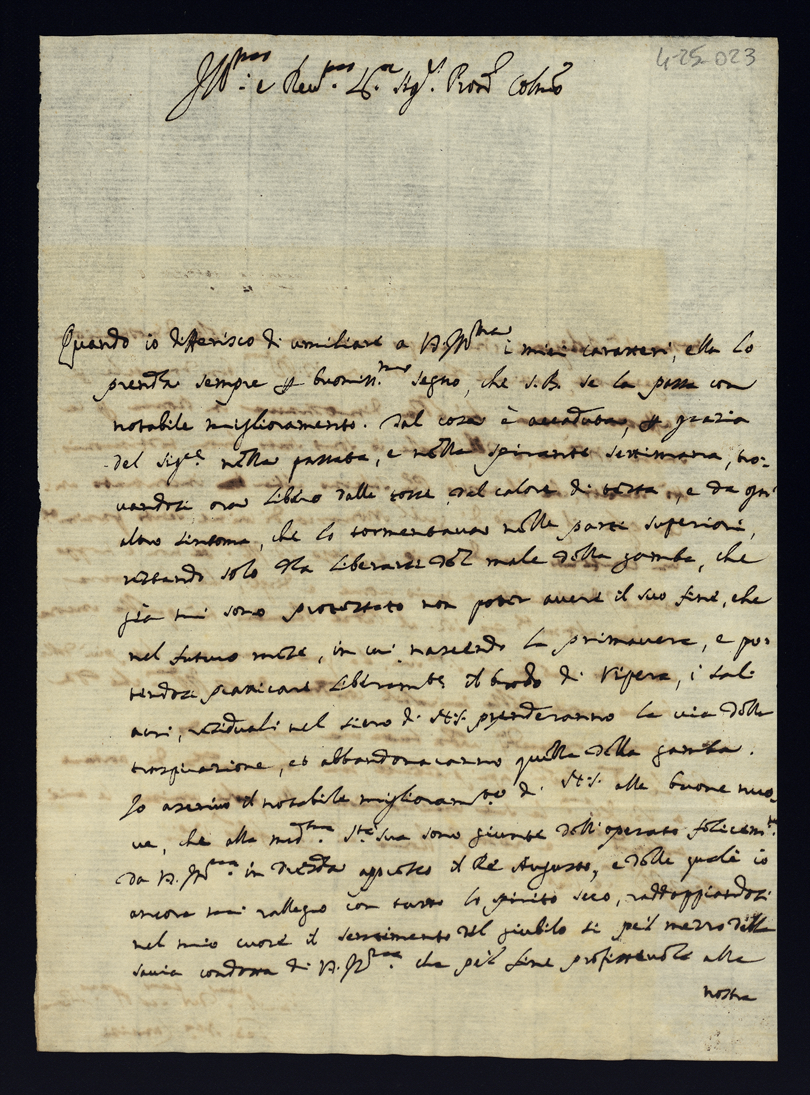 4-25 023
Ill.mo e Rev.mo Sig.r Sig.r Pron. Colmo
Quando io differisco di umiliare a V.S. Ill.ma i miei caratteri, ella lo
prenda sempre p buoniss.mo segno, che S.B. se la passa con
notabile miglioramento. Tal cosa è accaduta, p grazia
del Sig.re nella passata, e nella spirante settimana, tro-
uandosi ora libero dalle tosse, dal calore di testa, e da ogni
altro sintoma, che lo tormentaua nelle parti superiori,
restando solo da liberarsi dal male della gamba, che
già mi sono protestato non poter auere il suo fine, che
nel futuro mese, in cui nascendo la primauera, e po-
tendosi praticare liberam.te il brodo di Vipera, i sali
acri, residuali nel siero di S.S. prenderanno la uia della
traspirazione, et abbandonaranno quella della gamba.
Io ascriuo il notabile miglioram.to di S.S. alle buone nuo-
ue, che alla med.ma S.tà Sua sono giunte dell'operato felicem.te
da V.S. Ill.ma in Dresda appresso il Re Augusto, e delle quali io
ancora mi rallegro con tutto lo spirito seco, raddoppiandosi
nel mio cuore il sentimento del giubilo si pel mezzo della
sauia condotta di V.S. Ill.ma che pel fine profitteuole alla
nostra